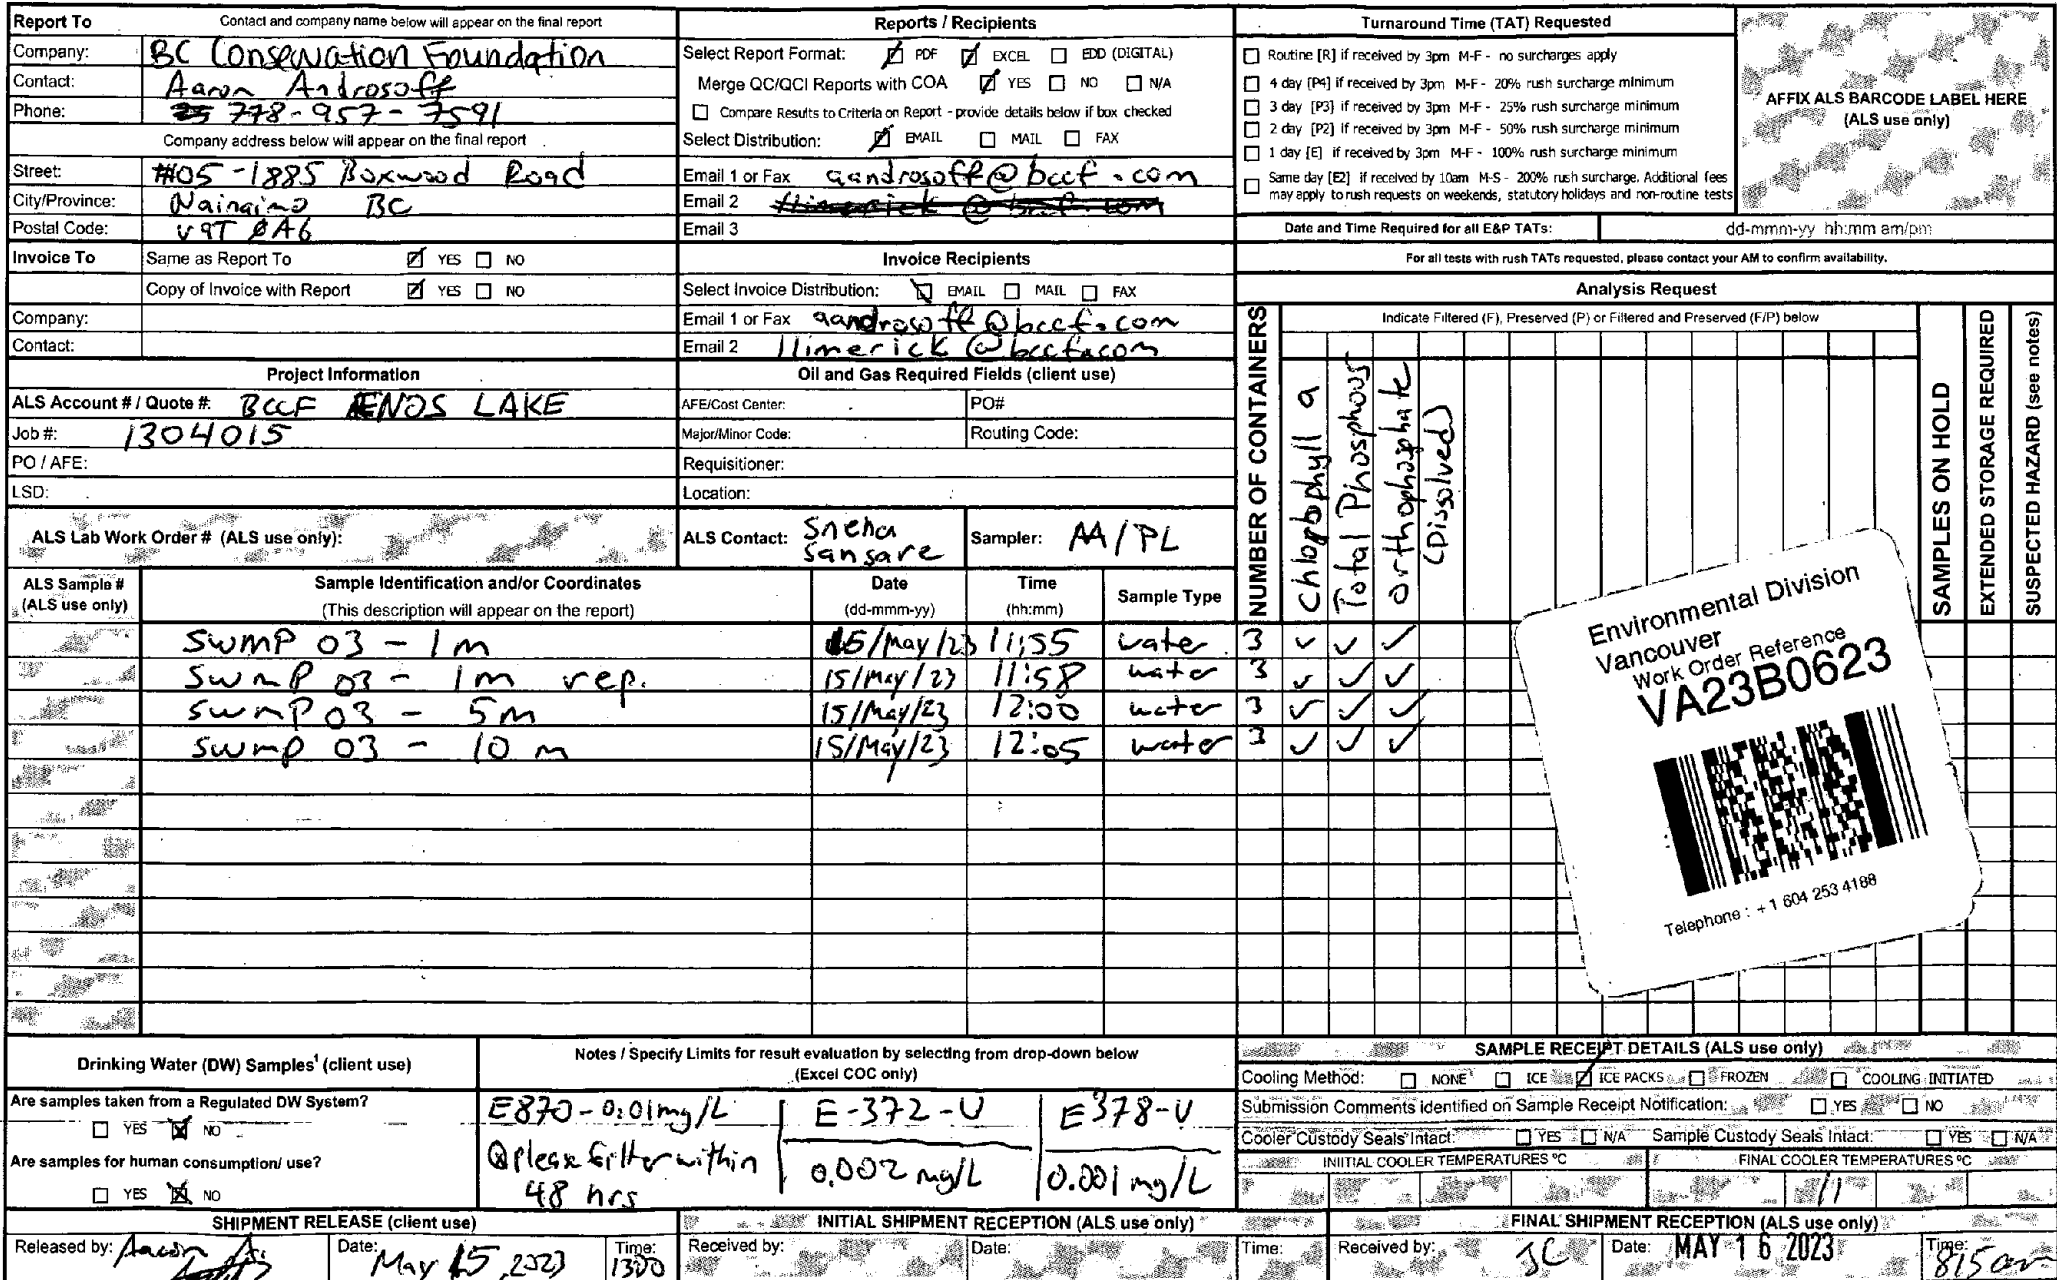 Report To Contact and company name below will appear on the final report
Company: BC Consevation Foundation
Contact: Aaron Androsoff
Phone: 778-957-7591
Company address below will appear on the final report
Street: #05-1885 Boxwood Road
City/Province: Nainaimo BC
Postal Code: V9T 0A6
Invoice To Same as Report To YES NO
Copy of Invoice with Report YES NO
Company:
Contact:
Project Information
ALS Account # / Quote #: BCCF ENOS LAKE
Job #: 1304015
PO / AFE:
LSD:
ALS Lab Work Order # (ALS use only):
Reports / Recipients
Select Report Format: PDF EXCEL EDD (DIGITAL)
Merge QC/QCI Reports with COA YES NO N/A
Compare Results to Criteria on Report - provide details below if box checked
Select Distribution: EMAIL MAIL FAX
Email 1 or Fax aandrosoff@bccf.com
Email 2
Email 3
Invoice Recipients
Select Invoice Distribution: EMAIL MAIL FAX
Email 1 or Fax aandrosoff@bccf.com
Email 2 llimerick@bccf.com
Oil and Gas Required Fields (client use)
AFE/Cost Center: PO#
Major/Minor Code: Routing Code:
Requisitioner:
Location:
ALS Contact: Sneha Sansare Sampler: AA/PL
Turnaround Time (TAT) Requested
Routine [R] if received by 3pm M-F - no surcharges apply
4 day [P4] if received by 3pm M-F - 20% rush surcharge minimum
3 day [P3] if received by 3pm M-F - 25% rush surcharge minimum
2 day [P2] if received by 3pm M-F - 50% rush surcharge minimum
1 day [E] if received by 3pm M-F - 100% rush surcharge minimum
Same day [E2] if received by 10am M-S - 200% rush surcharge. Additional fees
may apply to rush requests on weekends, statutory holidays and non-routine tests
AFFIX ALS BARCODE LABEL HERE
(ALS use only)
Date and Time Required for all E&P TATs: dd-mmm-yy hh:mm am/pm
For all tests with rush TATs requested, please contact your AM to confirm availability.
Analysis Request
Indicate Filtered (F), Preserved (P) or Filtered and Preserved (F/P) below
NUMBER OF CONTAINERS
Chlorophyll a
Total Phosphous
Orthophosphate
(Dissolved)
SAMPLES ON HOLD
EXTENDED STORAGE REQUIRED
SUSPECTED HAZARD (see notes)
ALS Sample # Sample Identification and/or Coordinates Date Time Sample Type
(ALS use only) (This description will appear on the report) (dd-mmm-yy) (hh:mm)
SWMP 03 - 1m 15/May/23 11:55 water 3 ✓ ✓ ✓
SWMP 03 - 1m rep. 15/May/23 11:58 water 3 ✓ ✓ ✓
SWMP 03 - 5m 15/May/23 12:00 water 3 ✓ ✓ ✓
SWMP 03 - 10 m 15/May/23 12:05 water 3 ✓ ✓ ✓
Environmental Division
Vancouver
Work Order Reference
VA23B0623
Telephone : +1 604 253 4188
Drinking Water (DW) Samples¹ (client use)
Are samples taken from a Regulated DW System?
YES NO
Are samples for human consumption/ use?
YES NO
Notes / Specify Limits for result evaluation by selecting from drop-down below
(Excel COC only)
E870-0.01mg/L E-372-U E378-U
please filter within 0.002 mg/L 0.001 mg/L
48 hrs
SAMPLE RECEIPT DETAILS (ALS use only)
Cooling Method: NONE ICE ICE PACKS FROZEN COOLING INITIATED
Submission Comments identified on Sample Receipt Notification: YES NO
Cooler Custody Seals Intact: YES N/A Sample Custody Seals Intact: YES N/A
INIITIAL COOLER TEMPERATURES ºC FINAL COOLER TEMPERATURES ºC
11
SHIPMENT RELEASE (client use) INITIAL SHIPMENT RECEPTION (ALS use only) FINAL SHIPMENT RECEPTION (ALS use only)
Released by: Aaron A. Date: May 15, 2023 Time: 1300 Received by: Date: Time: Received by: JC Date: MAY 16 2023 Time: 815 am